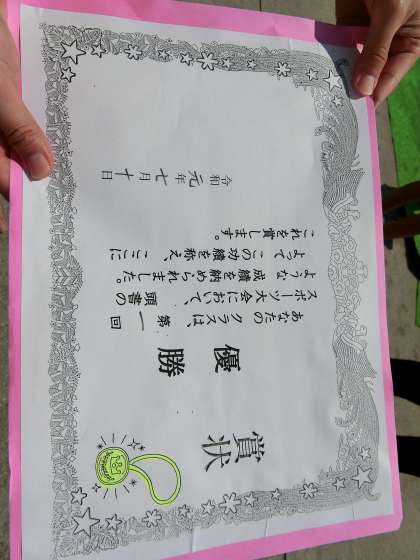 賞状
優勝
あなたのクラスは、第一回
スポーツ大会において、頭書の
ような成績を納められました。
よってこの功績を称え、ここに
これを賞します。
令和元年七月十日